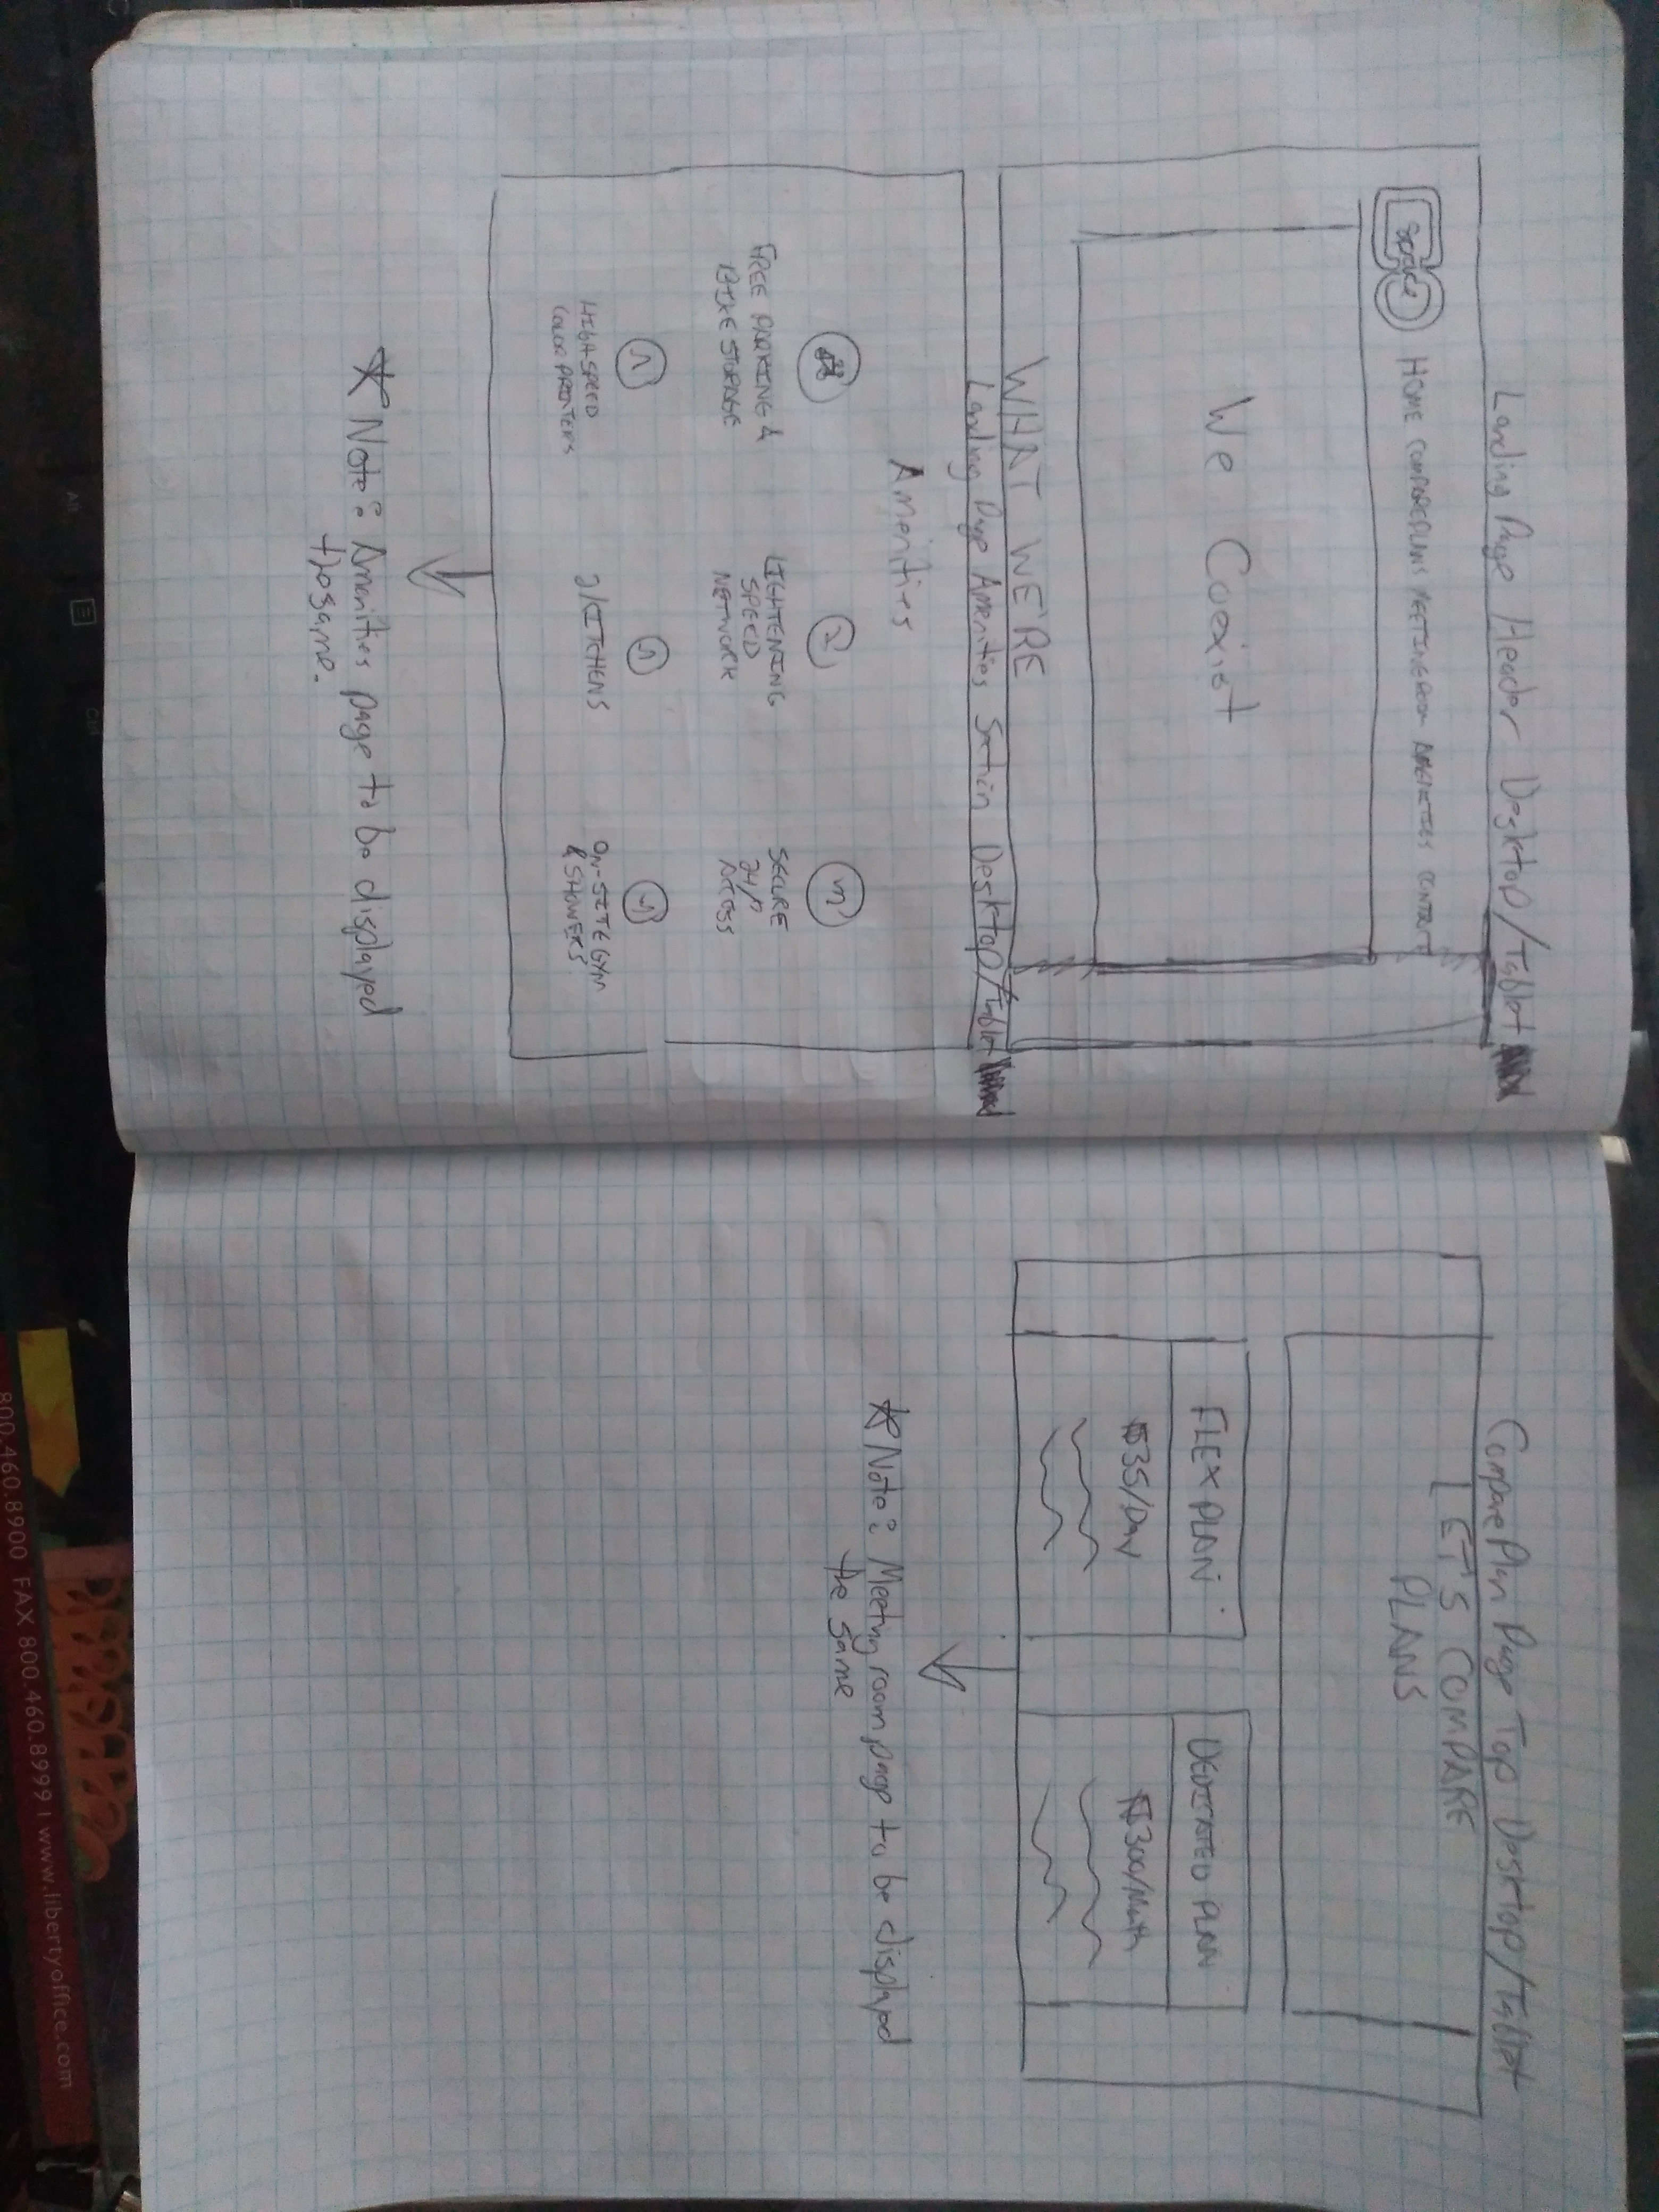 Landing Page Header Desktop/Tablet
Space
HOME COMPAREPLANS MEETINGROOM AMENITIES CONTACT
We Coexist
WHAT WE'RE
Landing Page Amenities Section Desktop/Tablet
Amenities
FREE PARKING &
BIKE STORAGE
LIGHTENING
SPEED
NETWORK
SECURE
24/7
ACCESS
HIGH SPEED
COLOR PRINTERS
2 KITCHENS
ON-SITE GYM
& SHOWERS
* Note: Amenities page to be displayed
the same.
Compare Plan Page Top Desktop/Tablet
LET'S COMPARE
PLANS
FLEX PLAN
$35/Day
DEDICATED PLAN
$300/Month
* Note: Meeting room page to be displayed
the same
800.460.8900 FAX 800.460.8999 I www.libertyoffice.com